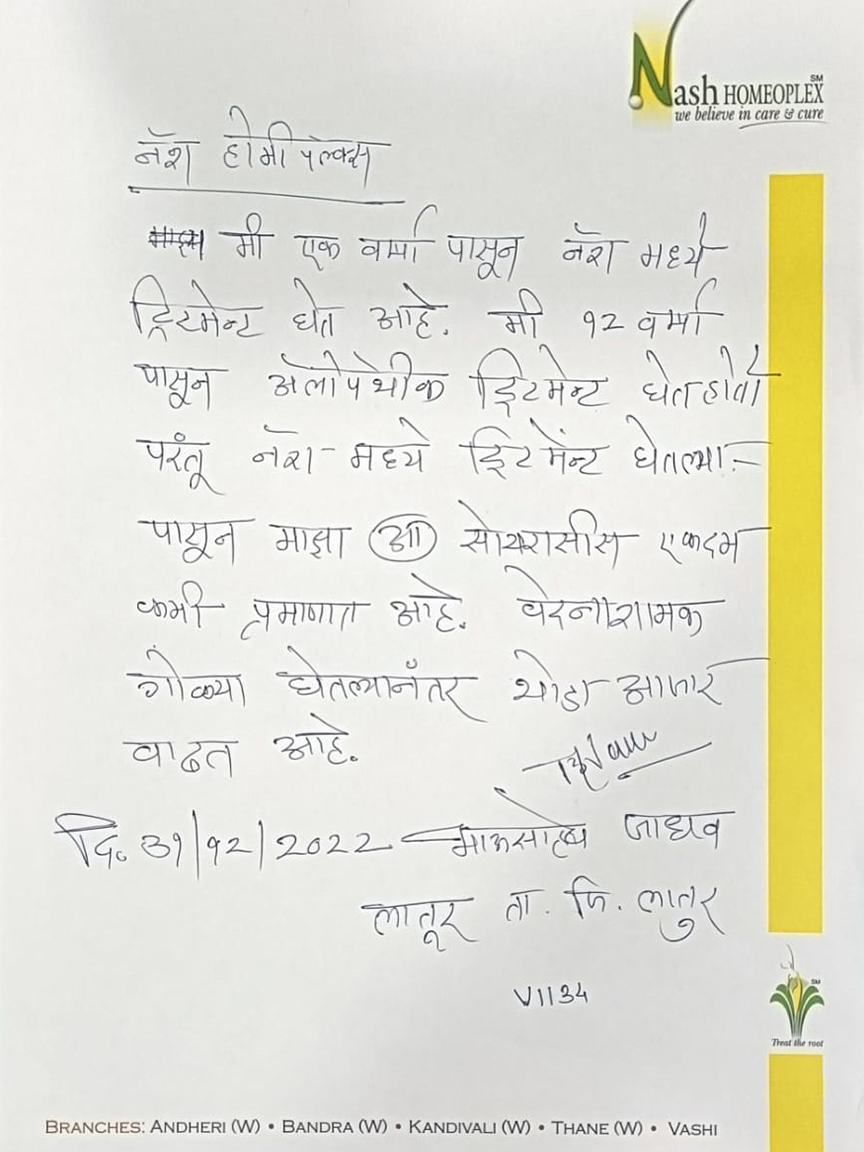 Nash HOMEOPLEX SM
we believe in care & cure
नॅश होमीपल्क्स
मी एक वर्षा पासून नॅश मध्ये
ट्रिटमेन्ट घेत आहे. मी १२ वर्षा
पासून अॅलोपॅथीक ट्रिटमेन्ट घेत होतो
परंतू नॅश मध्ये ट्रिटमेंन्ट घेतल्या-
पासून माझा आ सोयरासीस एकदम
कमी प्रमाणात आहे. वेदनाशामक
गोळ्या घेतल्यानंतर थोडा आजार
वाढत आहे.
दि. ३१/१२/2022 भाऊसाहेब जाधव
लातूर ता. जि. लातुर
V1134
SM
Treat the root
BRANCHES: ANDHERI (W) • BANDRA (W) • KANDIVALI (W) • THANE (W) • VASHI